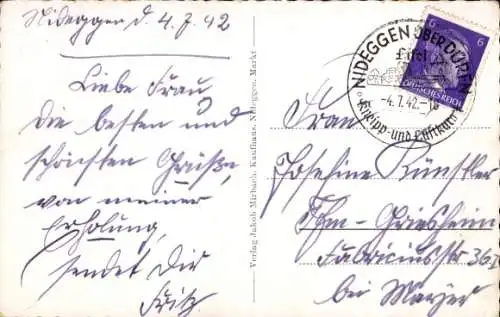 Nideggen d. 4.7.42
Liebe Frau
die besten und
schönsten Grüße,
von meiner
Erholung,
sendet Dir
Fritz
Verlag Jakob Mirbach, Kaufhaus, Nideggen-Markt
NIDEGGEN ÜBER DÜREN
Eifel
-4.7.42.-
Kneipp- und Luftkurort
6 6
DEUTSCHES REICH
Frau
Josefine Künstler
Ffm-Griesheim
Fabriciusstr 36
bei Mayer